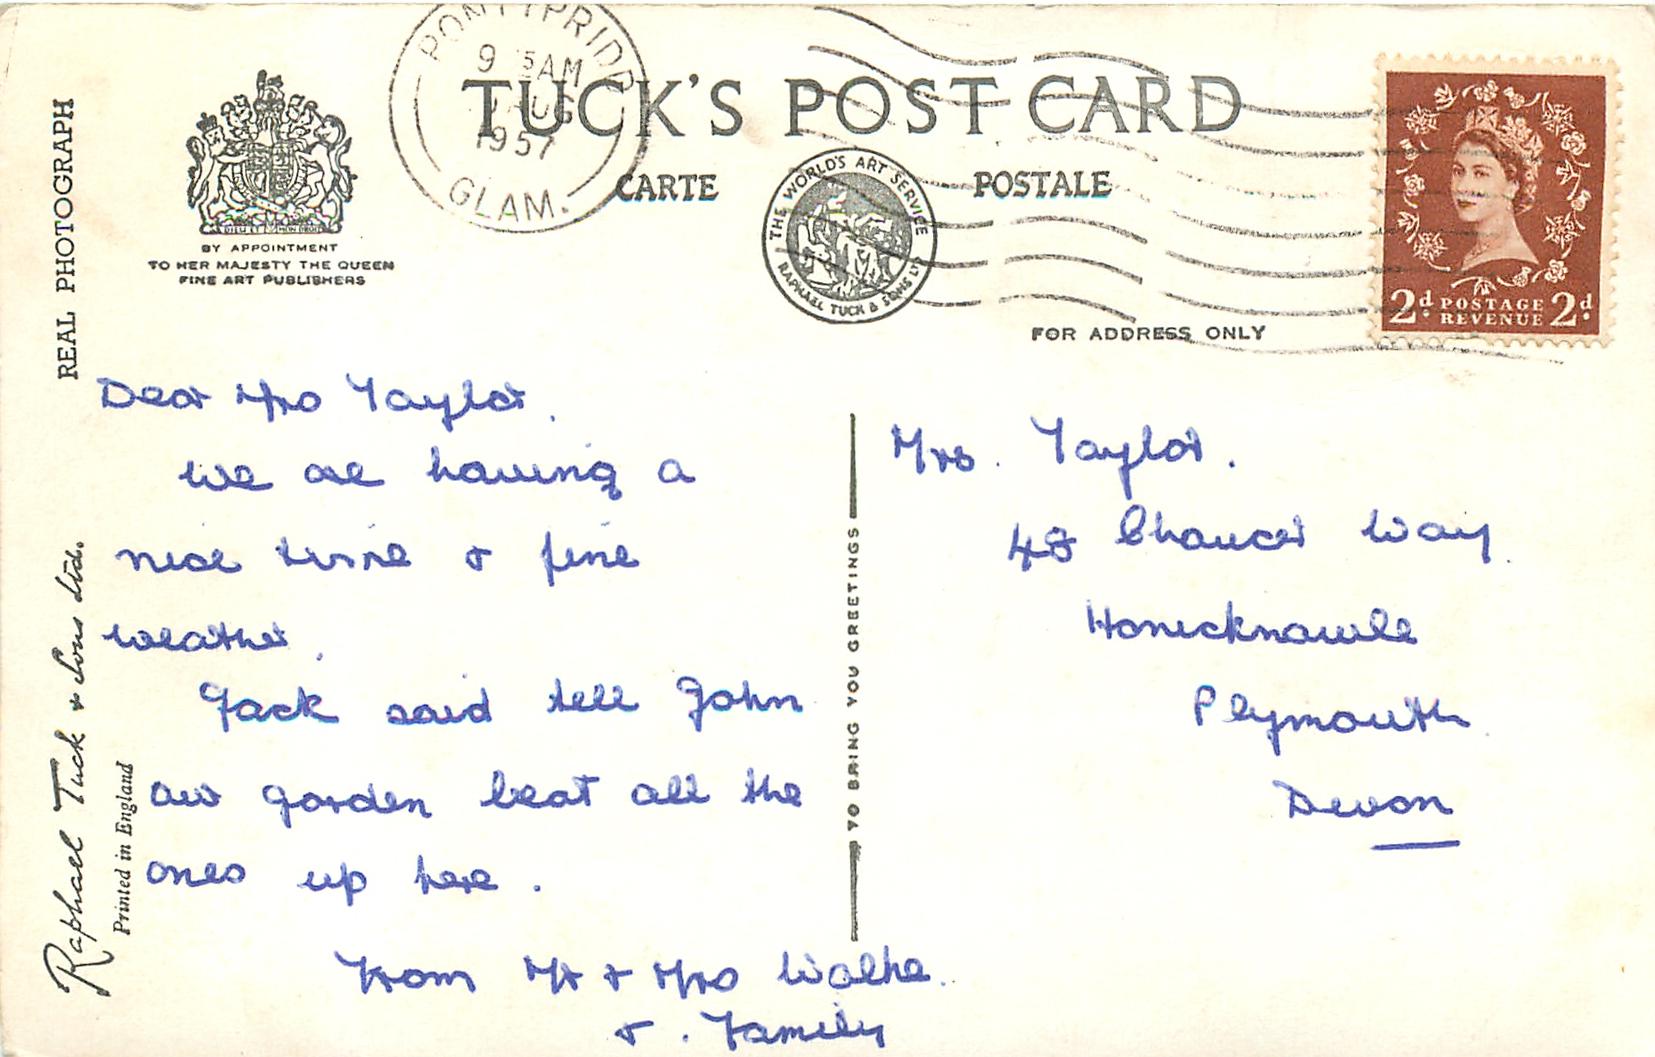 REAL PHOTOGRAPH
BY APPOINTMENT
TO HER MAJESTY THE QUEEN
FINE ART PUBLISHERS
PONTYPRIDD
9 AM
AUG
1957
GLAM.
TUCK'S POST CARD
CARTE POSTALE
THE WORLD'S ART SERVICE
RAPHAEL TUCK & SONS LTD
FOR ADDRESS ONLY
2d POSTAGE REVENUE 2d
Dear Mrs Taylor.
we are having a
nice time & fine
weather.
Jack said tell John
our garden beat all the
ones up here.
From Mr & Mrs
& . Family
TO BRING YOU GREETINGS
Mrs. Taylor.
48 Chaucer Way.
Honicknowle
Plymouth.
Devon
Raphael Tuck & Sons Ltd.
Printed in England